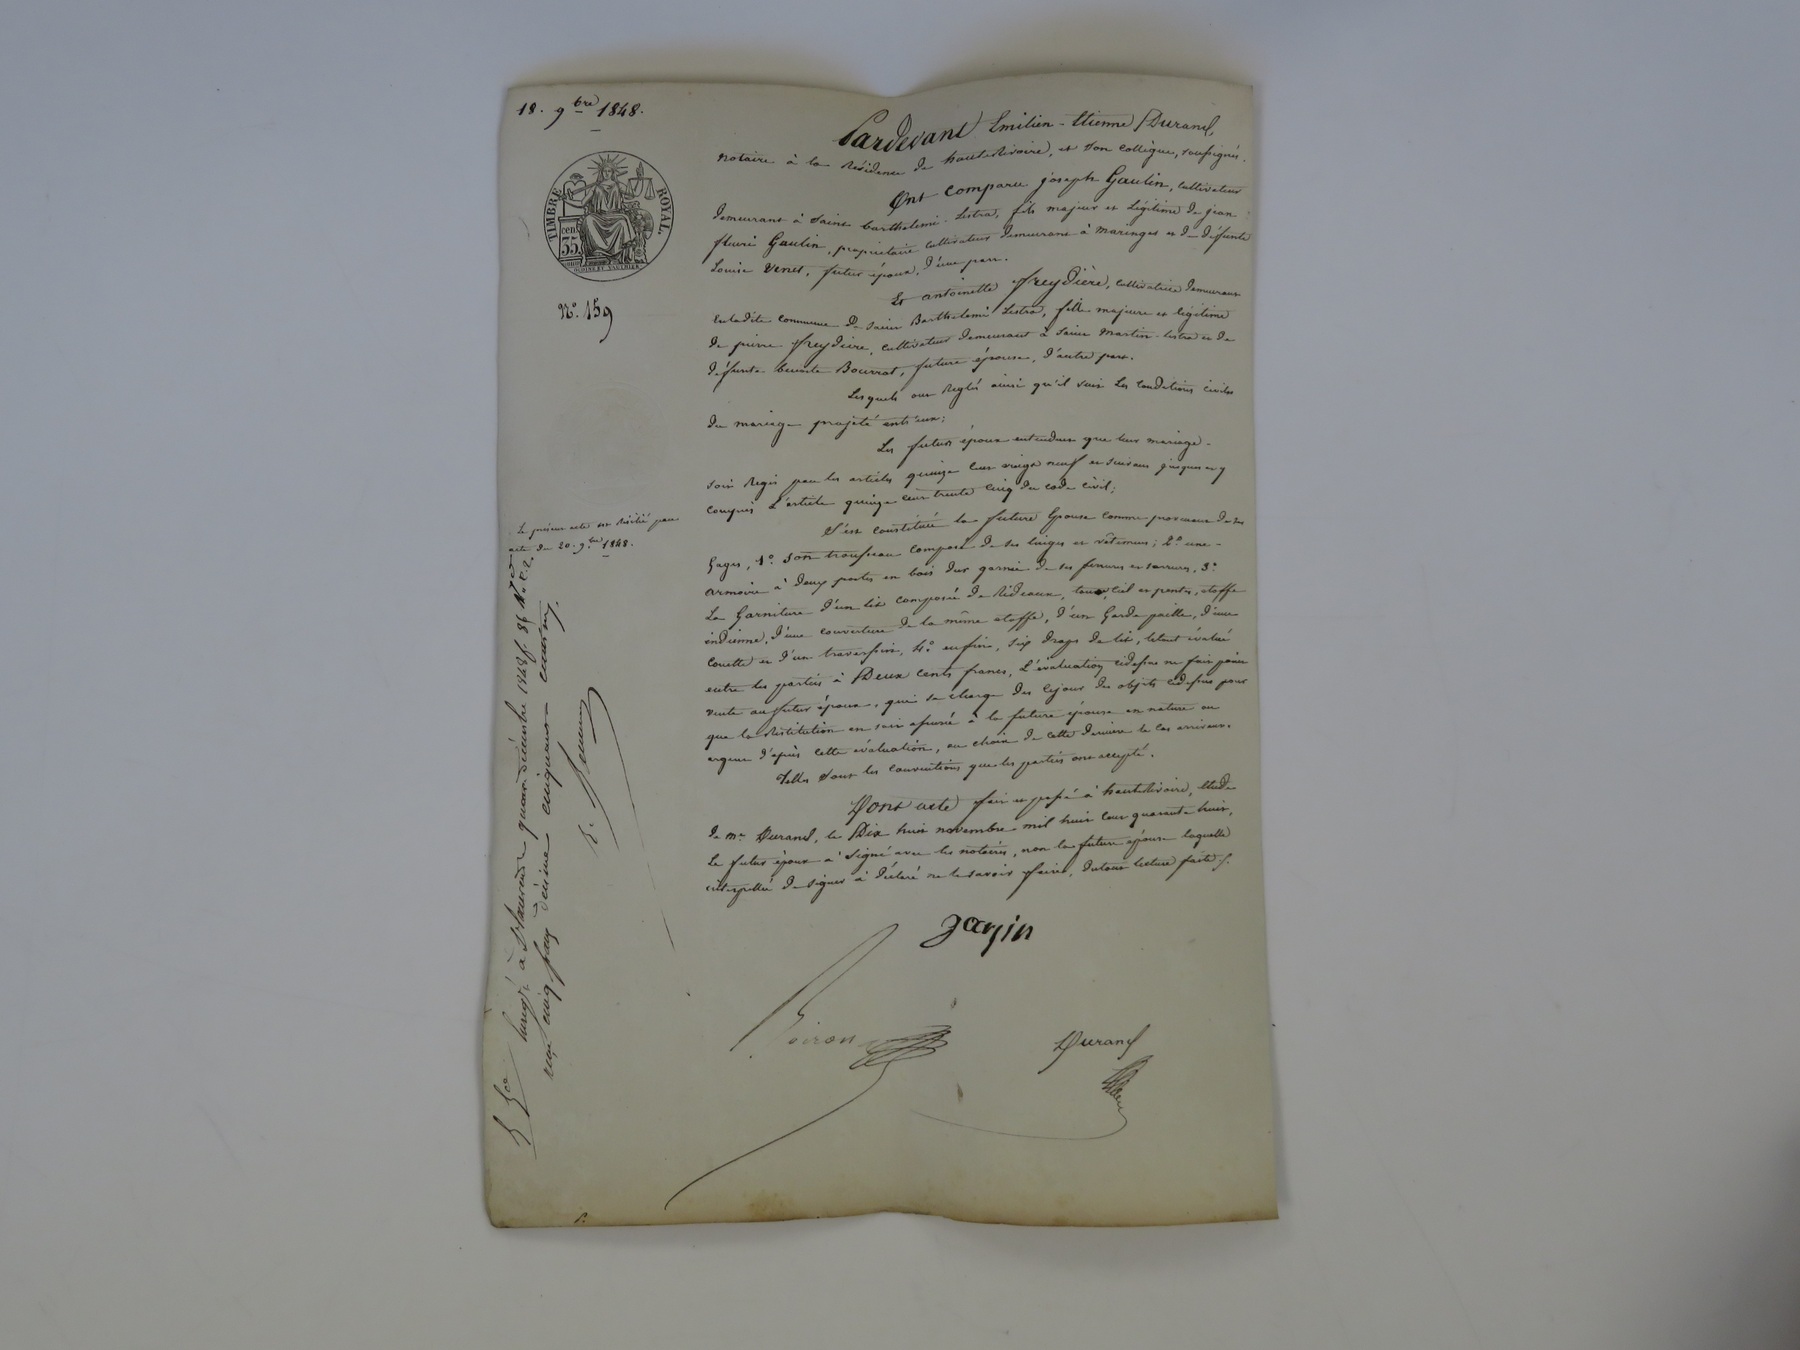 18. 9bre 1848.
TIMBRE ROYAL.
cen. 35
N°. 159
Le présent acte est résilié par
acte du 20. 9bre 1848.
Pardevant Emilien-Etienne Durand,
notaire à la Résidence de hauteRivoire, et son collègue, soussignés.
Ont comparu joseph Gaulin, cultivateur
demeurant à Saint barthelemi-Lestra, fils majeur et Légitime de jean
fleuri Gaulin, propriétaire cultivateur demeurant à maringes et de défunte
Louise Venet, futur époux, d'une part.
Et antoinette freydière, cultivatrice demeurant
en ladite commune de Saint Barthelemi Lestra, fille majeure et légitime
de pierre freydière, cultivateur demeurant à Saint Martin-Lestra et de
défunte benoite Bourrat, future épouse, d'autre part.
Lesquels ont réglé ainsi qu'il suit les conditions civiles
du mariage projeté entr'eux;
Les futurs époux entendent que leur mariage
soit régi par les articles quinze cent vingt neuf et suivans jusques et y
compris l'article quinze cent trente cinq du code civil;
S'est constituée la future Epouse comme provenant de ses
gages, 1°. Son trousseau composé de ses linges et vêtemens; 2°. une
armoire à deux portes en bois dur garnie de ses ferrures et serrures, 3°.
La Garniture d'un lit composée de Rideaux, tour, ciel et pentes, étoffe
indienne, d'une couverture de la même étoffe, d'un Garde paille, d'une
couette et d'un traversin, 4°. enfin, six draps de lit, le tout évalué
entre les parties à Deux cents francs, L'évaluation cidessus ne fait point
vente au futur époux, qui se charge dès cejour des objets cidessus pour
que la Restitution en soit assurée à la future épouse en nature ou
argent d'après cette évaluation, au choix de cette dernière le cas arrivant.
Telles sont les conventions que les parties ont accepté.
Dont acte fait et passé à hauteRivoire, Etude
de me Durand, le Dix huit novembre mil huit cent quarante huit,
Le futur époux a signé avec les notaires, non la future épouse laquelle
interpellée de signer a déclaré ne le savoir faire, du tout lecture faite.
Durand
Enregé à St Laurent quatre décembre 1848 f. 86
reçu cinq francs décime cinquante centimes